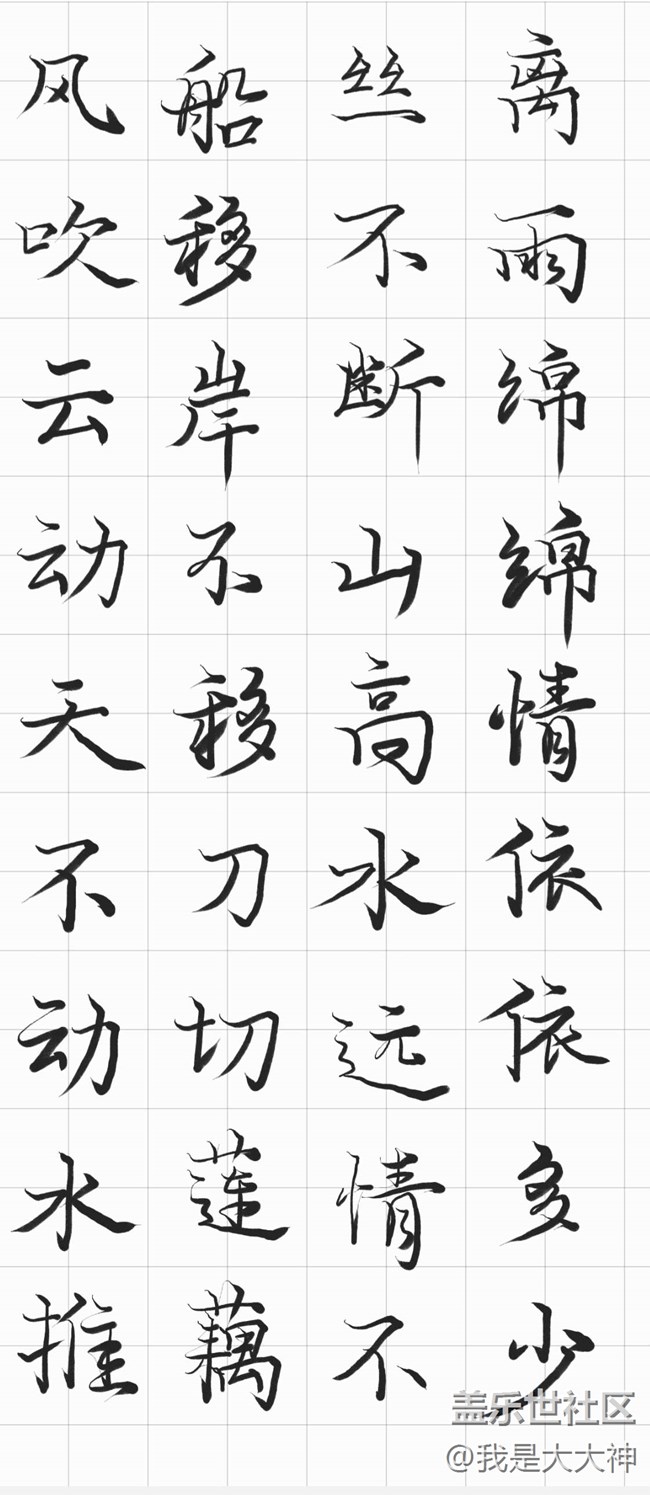 风吹云动天不动水推
船移岸不移刀切莲藕
丝不断山高水远情不
离雨绵绵情依依多少
盖乐世社区
@我是大大神